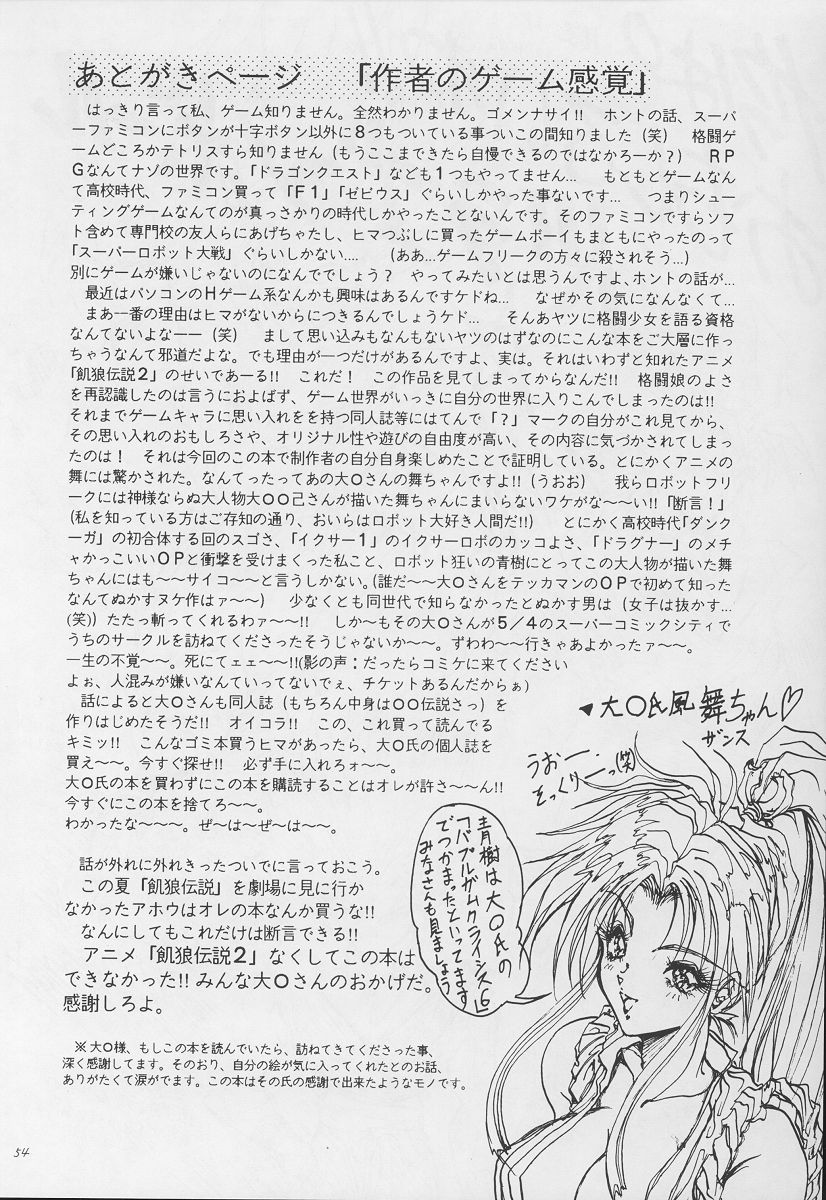 あとがきページ 「作者のゲーム感覚」
はっきり言って私、ゲーム知りません。全然わかりません。ゴメンナサイ!! ホントの話、スーパ
ーファミコンにボタンが十字ボタン以外に８つもついている事ついこの間知りました（笑） 格闘ゲ
ームどころかテトリスすら知りません（もうここまできたら自慢できるのではなかろーか？） ＲＰ
Ｇなんてナゾの世界です。「ドラゴンクエスト」なども１つもやってません… もともとゲームなん
て高校時代、ファミコン買って「Ｆ１」「ゼビウス」ぐらいしかやった事ないです… つまりシュー
ティングゲームなんてのが真っさかりの時代しかやったことないんです。そのファミコンですらソフ
ト含めて専門校の友人らにあげちゃたし、ヒマつぶしに買ったゲームボーイもまともにやったのって
「スーパーロボット大戦」ぐらいしかない…. （ああ…ゲームフリークの方々に殺されそう…）
別にゲームが嫌いじゃないのになんででしょう？ やってみたいとは思うんですよ、ホントの話が…
最近はパソコンのＨゲーム系なんかも興味はあるんですケドね… なぜかその気になんなくて…
まあ一番の理由はヒマがないからにつきるんでしょうケド… そんあヤツに格闘少女を語る資格
なんてないよなーー（笑） まして思い込みもなんもないヤツのはずなのにこんな本をご大層に作っ
ちゃうなんて邪道だよな。でも理由が一つだけがあるんですよ、実は。それはいわずと知れたアニメ
「飢狼伝説２」のせいであーる!! これだ！ この作品を見てしまってからなんだ!! 格闘娘のよさ
を再認識したのは言うにおよばず、ゲーム世界がいっきに自分の世界に入りこんでしまったのは!!
それまでゲームキャラに思い入れをを持つ同人誌等にはてんで「？」マークの自分がこれ見てから、
その思い入れのおもしろさや、オリジナル性や遊びの自由度が高い、その内容に気づかされてしまっ
たのは！ それは今回のこの本で制作者の自分自身楽しめたことで証明している。とにかくアニメの
舞には驚かされた。なんてったってあの大〇さんの舞ちゃんですよ!!（うおお） 我らロボットフリ
ークには神様ならぬ大人物大〇〇己さんが描いた舞ちゃんにまいらないワケがな〜〜い!!「断言！」
（私を知っている方はご存知の通り、おいらはロボット大好き人間だ!!） とにかく高校時代「ダンク
ーガ」の初合体する回のスゴさ、「イクサー１」のイクサーロボのカッコよさ、「ドラグナー」のメチ
ャかっこいいＯＰと衝撃を受けまくった私こと、ロボット狂いの青樹にとってこの大人物が描いた舞
ちゃんにはも〜〜サイコ〜〜と言うしかない。（誰だ〜〜大〇さんをテッカマンのＯＰで初めて知った
なんてぬかすヌケ作はァ〜〜） 少なくとも同世代で知らなかったとぬかす男は（女子は抜かす…
（笑））たたっ斬ってくれるわァ〜〜!! しか〜もその大〇さんが５／４のスーパーコミックシティで
うちのサークルを訪ねてくださったそうじゃないか〜〜。ずわわ〜〜行きゃあよかったァ〜〜。
一生の不覚〜〜。死にてェェ〜〜!!（影の声：だったらコミケに来てください
よぉ、人混みが嫌いなんていってないでぇ、チケットあるんだからぁ）
話によると大〇さんも同人誌（もちろん中身は〇〇伝説さっ）を
作りはじめたそうだ!! オイコラ!! この、これ買って読んでる
キミッ!! こんなゴミ本買うヒマがあったら、大〇氏の個人誌を
買え〜〜。今すぐ探せ!! 必ず手に入れろォ〜〜。
大〇氏の本を買わずにこの本を購読することはオレが許さ〜〜ん!!
今すぐにこの本を捨てろ〜〜。
わかったな〜〜〜。ぜ〜は〜ぜ〜は〜〜。
話が外れに外れきったついでに言っておこう。
この夏「飢狼伝説」を劇場に見に行か
なかったアホウはオレの本なんか買うな!!
なんにしてもこれだけは断言できる!!
アニメ「飢狼伝説２」なくしてこの本は
できなかった!! みんな大〇さんのおかげだ。
感謝しろよ。
※大〇様、もしこの本を読んでいたら、訪ねてきてくださった事、
深く感謝してます。そのおり、自分の絵が気に入ってくれたとのお話、
ありがたくて涙がでます。この本はその氏の感謝で出来たようなモノです。
▼大〇氏風舞ちゃん♡
ザンス
うおー
そっくりーっ（笑）
青樹は大〇氏の
「バブルガムクライシス６」
でつかまったといってます
みなさんも見ましょう
54